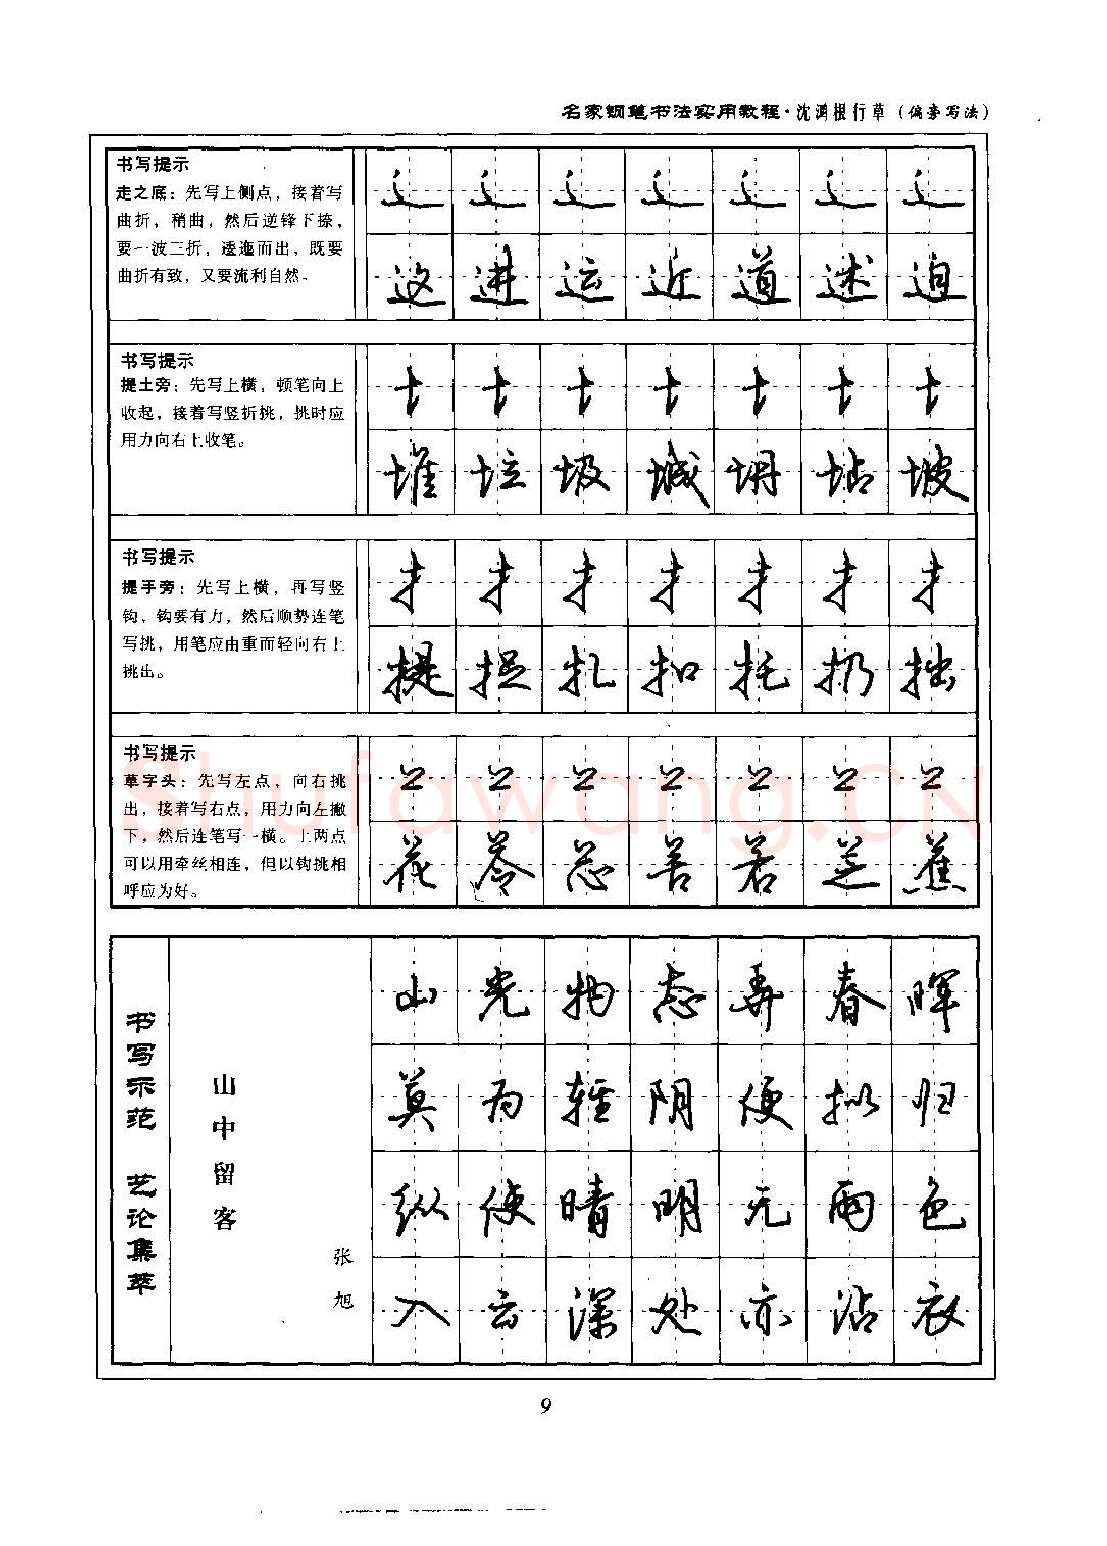 名家钢笔书法实用教程·沈鸿根行草（偏旁写法）
书写提示
走之底：先写上侧点，接着写
曲折，稍曲，然后逆锋下捺，
要一波三折，逶迤而出，既要
曲折有致，又要流利自然。
辶 辶 辶 辶 辶 辶 辶
这 进 运 近 道 述 迫
书写提示
提土旁：先写上横，顿笔向上
收起，接着写竖折挑，挑时应
用力向右上收笔。
土 土 土 土 土 土 土
堆 垃 圾 城 坍 坫 坡
书写提示
提手旁：先写上横，再写竖
钩，钩要有力，然后顺势连笔
写挑，用笔应由重而轻向右上
挑出。
扌 扌 扌 扌 扌 扌 扌
提 捉 扎 扣 托 扔 拙
书写提示
草字头：先写左点，向右挑
出，接着写右点，用力向左撇
下，然后连笔写一横。上两点
可以用牵丝相连，但以钩挑相
呼应为好。
艹 艹 艹 艹 艹 艹 艹
花 苓 芯 苦 若 芝 蕉
shufawang.CN
书写示范 艺论集萃
山中留客
张旭
山光物态弄春晖
莫为轻阴便拟归
纵使晴明无雨色
入云深处亦沾衣
9